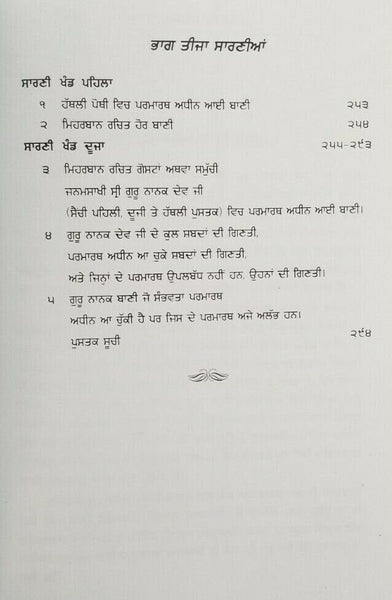 ਭਾਗ ਤੀਜਾ ਸਾਰਣੀਆਂ
ਸਾਰਣੀ ਖੰਡ ਪਹਿਲਾ
੧ ਹੱਥਲੀ ਪੋਥੀ ਵਿਚ ਪਰਮਾਰਥ ਅਧੀਨ ਆਈ ਬਾਣੀ ੨੫੩
੨ ਮਿਹਰਬਾਨ ਰਚਿਤ ਹੋਰ ਬਾਣੀ ੨੫੪
ਸਾਰਣੀ ਖੰਡ ਦੂਜਾ ੨੫੫-੨੯੩
੩ ਮਿਹਰਬਾਨ ਰਚਿਤ ਗੋਸਟਾਂ ਅਥਵਾ ਸਮੁੱਚੀ
ਜਨਮਸਾਖੀ ਸ੍ਰੀ ਗੁਰੂ ਨਾਨਕ ਦੇਵ ਜੀ
(ਸੈਂਚੀ ਪਹਿਲੀ, ਦੂਜੀ ਤੇ ਹੱਥਲੀ ਪੁਸਤਕ) ਵਿਚ ਪਰਮਾਰਥ ਅਧੀਨ ਆਈ ਬਾਣੀ।
੪ ਗੁਰੂ ਨਾਨਕ ਦੇਵ ਜੀ ਦੇ ਕੁਲ ਸਬਦਾਂ ਦੀ ਗਿਣਤੀ,
ਪਰਮਾਰਥ ਅਧੀਨ ਆ ਚੁਕੇ ਸਬਦਾਂ ਦੀ ਗਿਣਤੀ,
ਅਤੇ ਜਿਨ੍ਹਾਂ ਦੇ ਪਰਮਾਰਥ ਉਪਲਬਧ ਨਹੀਂ ਹਨ, ਉਹਨਾਂ ਦੀ ਗਿਣਤੀ।
੫ ਗੁਰੂ ਨਾਨਕ ਬਾਣੀ ਜੋ ਸੰਭਵਤਾ ਪਰਮਾਰਥ
ਅਧੀਨ ਆ ਚੁੱਕੀ ਹੈ ਪਰ ਜਿਸ ਦੇ ਪਰਮਾਰਥ ਅਜੇ ਅਲੱਭ ਹਨ।
ਪੁਸਤਕ ਸੂਚੀ ੨੯੪